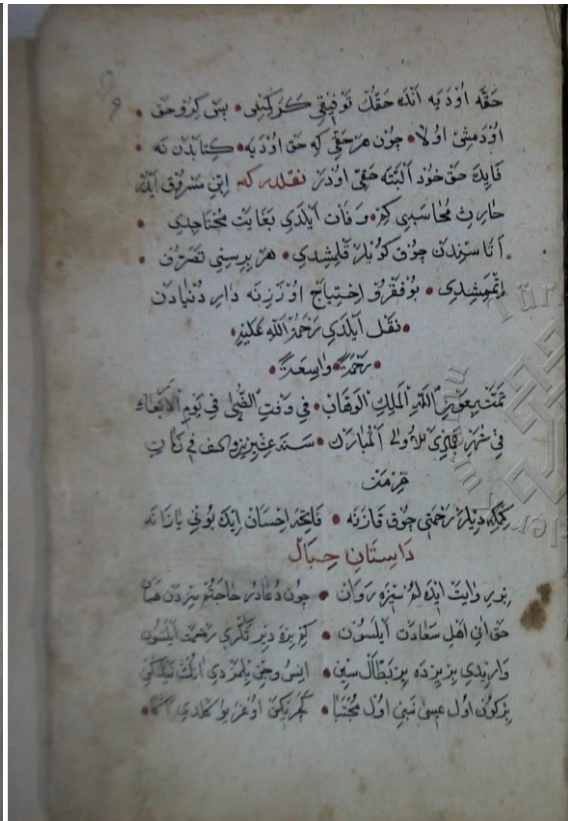 حقّه اودیه انده حقّك توفیقی كركینی • بس كرو حق •
اودمش اولا • چون هر حقّی كه حق اودیه • كتابدن نه
فایده حق خود البتّه حقّی اودر نقلدر كه ابن مسروق ایدر
حارث محاسبی كم • وفات ایلدی بغایت محتاجدی •
اتا سندن چوق كویلر قلمشدی • هر برسنی تصرّف •
اتممشدی • بو فقر و احتیاج اوزرنه دار دنیادن
• نقل ایلدی رحمة الله علیه •
• رحمة • واسعة •
تمّت بعون الله الملك الوهّاب • فی وقت الضّحی فی یوم الاربعاء
فی شهر جمادی الاولی المبارك • سنة عشرین والف
من
كمكه دیلر رحمتی چوق قازنه • فاتحه احسان ایده بونی یازانه
داستان
بر روایت ایده لم سزه روان • چون دعادر حاجتم سزدن همان
حق انی اهل سعادت ایلسون • كم بزه دیر تكری رحمت ایلسون
واریدی بر یرده بر بطّال
بركون اول عیسی نبی اول مجتبا • كچركن اوغریو كلدی اكا •